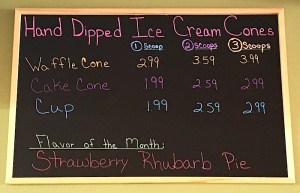 Hand Dipped Ice Cream Cones
1 Scoop 2 Scoops 3 Scoops
Waffle Cone 2.99 3.59 3.99
Cake Cone 1.99 2.59 2.99
Cup 1.99 2.59 2.99
Flavor of the Month:
Strawberry Rhubarb Pie